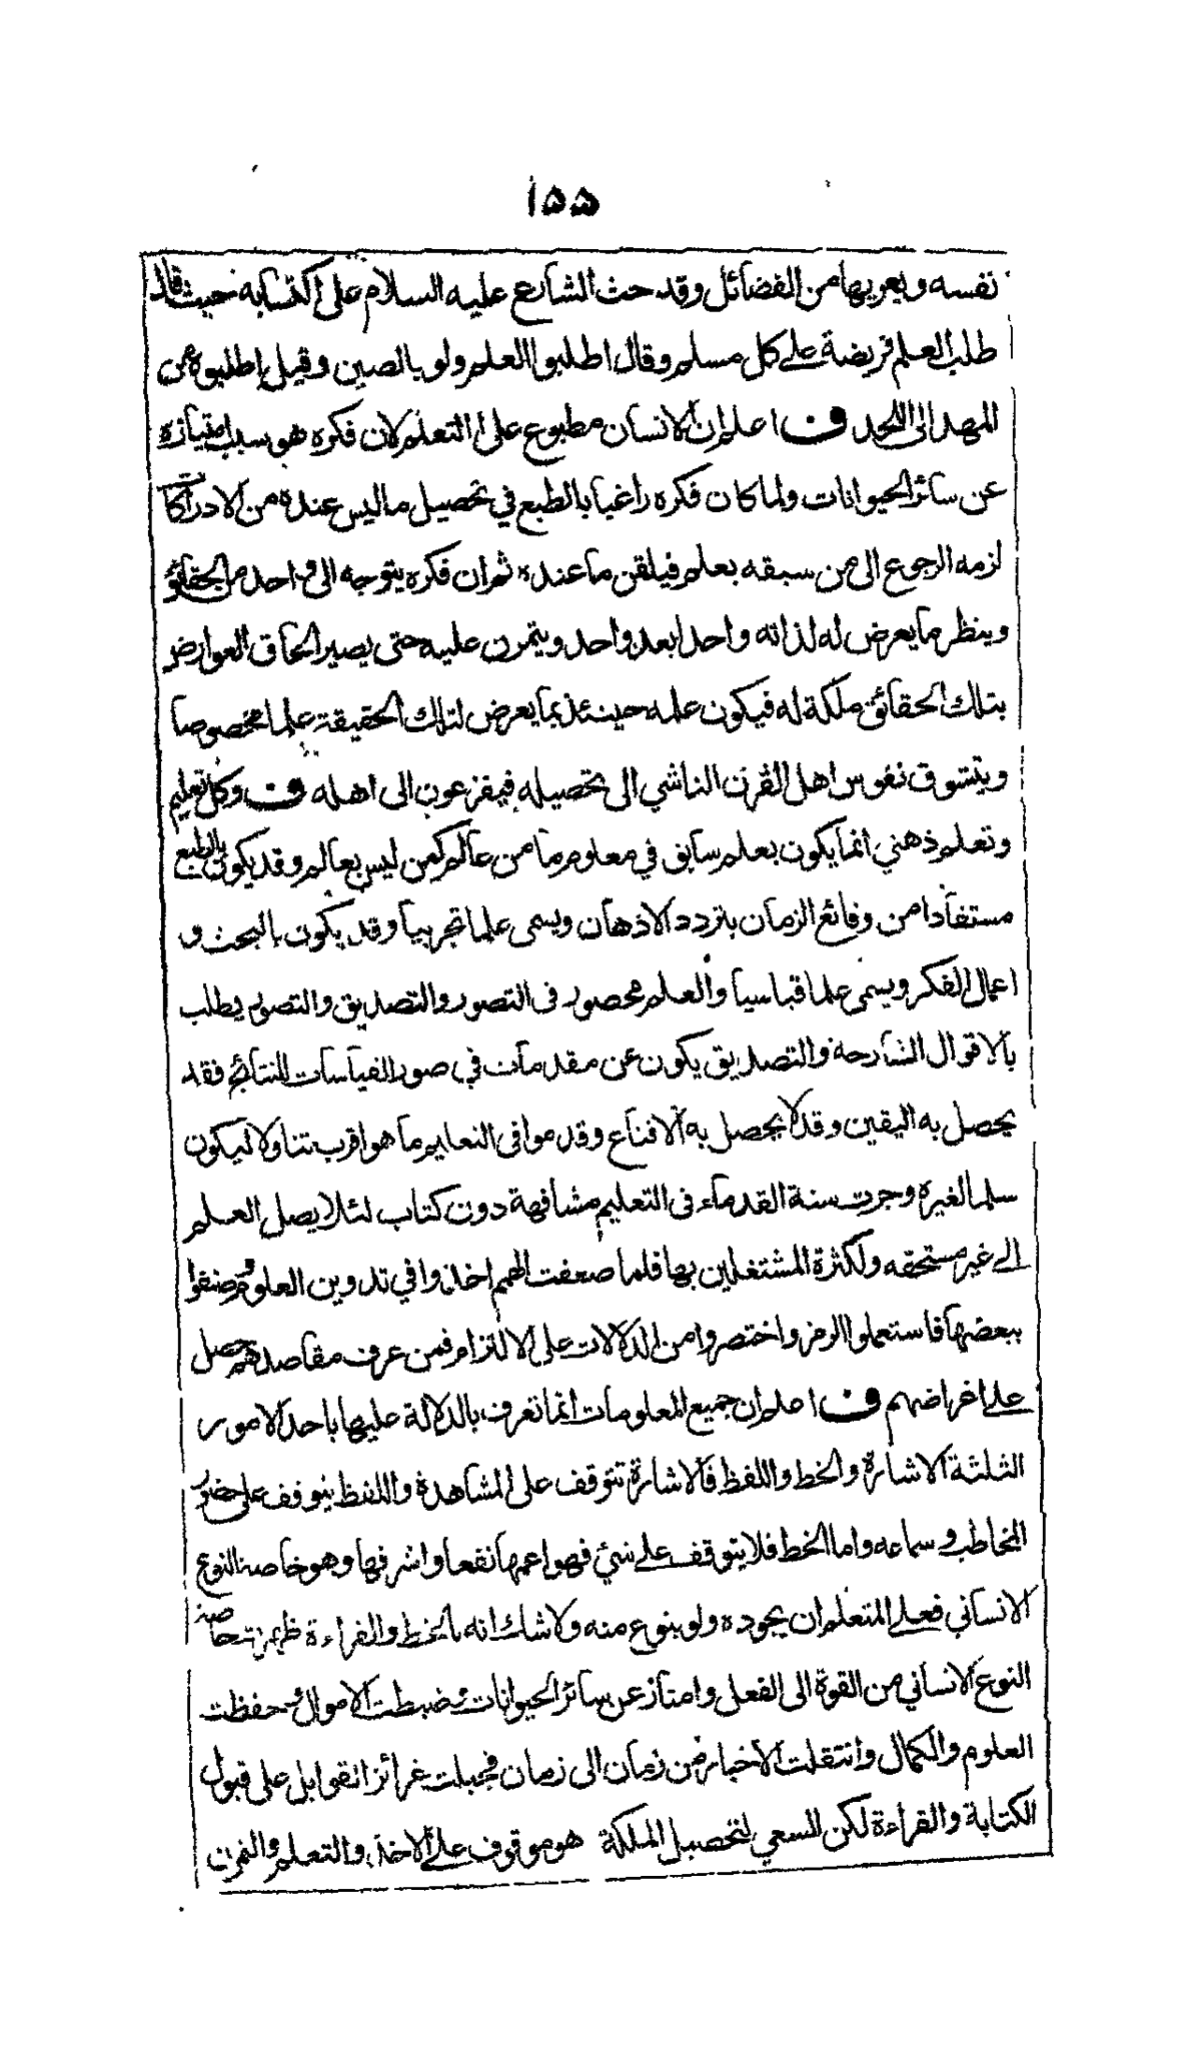 ١٥٥
نفسه ويعريها من الفضائل وقد حث الشارع عليه السلام على اكتسابه حيث قال
طلب العلم فريضة على كل مسلم وقال اطلبوا العلم ولو بالصين وقيل اطلبوه من
المهد الى اللحد ف اعلم ان الانسان مطبوع على التعلم لان فكره هو سبب امتيازه
عن سائر الحيوانات ولما كان فكره راغبا بالطبع في تحصيل ما ليس عنده من الادراكات
لزمه الرجوع الى من سبقه بعلم فيلقن ما عنده ثم ان فكره يتوجه الى واحد من الحقائق
وينظر ما يعرض له لذاته واحدا بعد واحد ويتمرن عليه حتى يصير الحاق العوارض
بتلك الحقائق ملكة له فيكون علمه حينئذ بما يعرض لتلك الحقيقة علما مخصوصا
ويتشوق نفوس اهل القرن الناشي الى تحصيله فيفزعون الى اهله ف وكل تعليم
وتعلم ذهني انما يكون بعلم سابق في معلوم ما من عالم كمن ليس بعالم وقد يكون بالطبع
مستفادا من وقائع الزمان بتردد الاذهان ويسمى علما تجربيا وقد يكون بالبحث و
اعمال الفكر ويسمى علما قياسيا والعلم محصور فى التصور والتصديق والتصور يطلب
بالاقوال الشارحة والتصديق يكون عن مقدمات في صور القياسات للنتائج فقد
يحصل به اليقين وقد لا يحصل به الا اقناع وقدموا فى التعليم ما هو اقرب تناولا ليكون
سلما لغيره وجرت سنة القدماء فى التعليم مشافهة دون كتاب لئلا يصل العلم
الى غير مستحقه ولكثرة المشتغلين بها فلما ضعفت الهمم اخذوا في تدوين العلوم وضنوا
ببعضها فاستعملوا الرمز واختصروا من الدلالات على الالتزام فمن عرف مقاصدهم حصل
على اغراضهم ف اعلم ان جميع المعلومات انما تعرف بالدلالة عليها باحد الامور
الثلثة الاشارة والخط واللفظ فالاشارة تتوقف على المشاهدة واللفظ يتوقف على حضور
المخاطب وسماعه واما الخط فلا يتوقف على شيء فهو اعمها نفعا واشرفها وهو خاصة النوع
الانساني فعلى المتعلم ان يجوده ولو بنوع منه ولا شك انه بالخط والقراءة ظهرت خاصة
النوع الانساني من القوة الى الفعل وامتاز عن سائر الحيوانات وضبطت الاموال وحفظت
العلوم والكمال وانتقلت الاخبار من زمان الى زمان فجبلت غرائز القوابل على قبول
الكتابة والقراءة لكن السعي لتحصيل الملكة هو موقوف على الاخذ والتعلم والتمرن